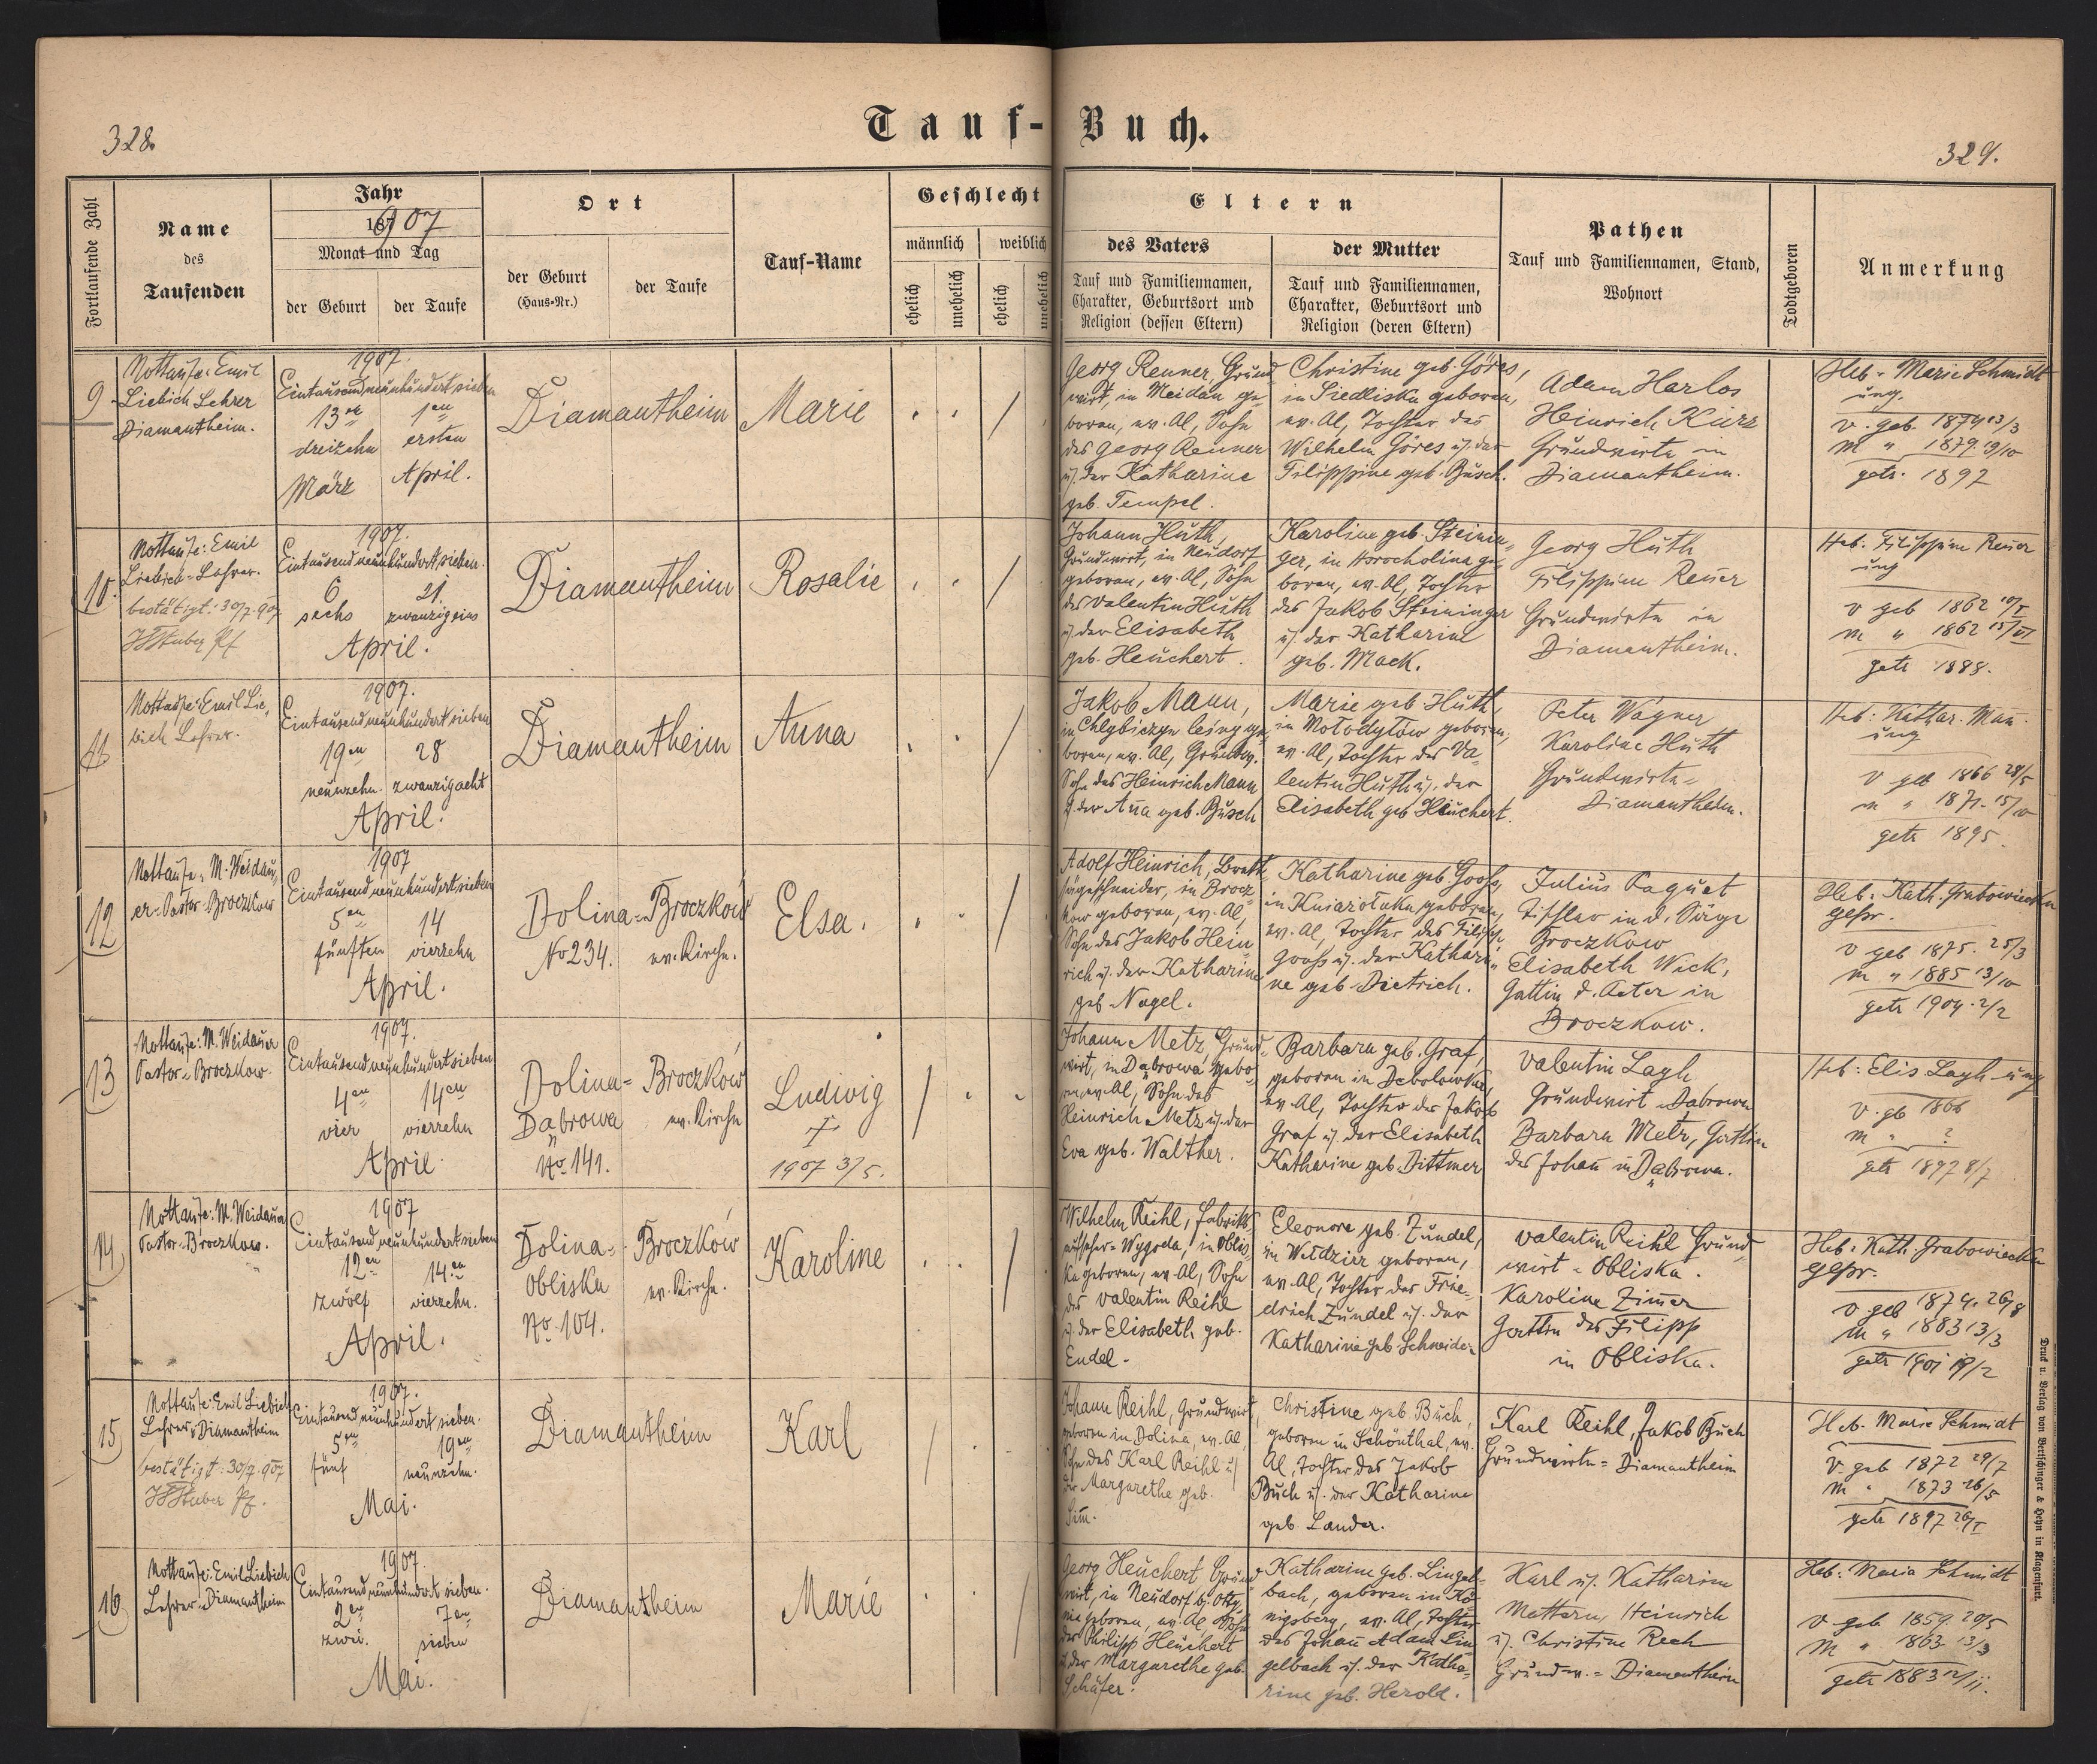 328.
Tauf-Buch.
329.
Fortlaufende Zahl
Name
des
Taufenden
Jahr
1907
Monat und Tag
der Geburt
der Taufe
Ort
der Geburt
(Haus-Nr.)
der Taufe
Tauf-Name
Geschlecht
männlich
weiblich
ehelich
unehelich
ehelich
unehelich
Eltern
des Vaters
Tauf und Familiennamen,
Charakter, Geburtsort und
Religion (dessen Eltern)
der Mutter
Tauf und Familiennamen,
Charakter, Geburtsort und
Religion (deren Eltern)
Pathen
Tauf und Familiennamen, Stand,
Wohnort
Todtgeboren
Anmerkung
9
Nottaufe: Emil
Liebich Lehrer
Diamantheim.
1907.
Eintausendneunhundertsieben
13en 1en
dreizehn ersten
März April.
Diamantheim
Marie
Georg Renner, Grund
wirt, in Meidan ge
boren, ev. Al, Sohn
des Georg Renner
u. der Katharine
geb. Tempel.
Christine geb. Göres,
in Siedliska geboren,
ev. Al, Tochter des
Wilhelm Göres u. der
Filippine geb. Busch.
Adam Harlos
Heinrich Kurz
Grundwirte in
Diamantheim.
Heb. Marie Schmidt
ung.
v. geb. 1874 13/3
m " 1879. 19/10
getr. 1897
10.
Nottaufe: Emil
Liebich Lehrer.
bestätigt: 30/7. 907
Pf
1907.
Eintausendneunhundertsieben.
6 21.
sechs zwanzigeins
April.
Diamantheim
Rosalie
Johann Huth,
Grundwirt, in Neudorf
geboren, ev. Al, Sohn
des Valentin Huth
u. der Elisabeth
geb. Heuchert.
Karoline geb. Steinin-
ger, in Horocholina ge
boren, ev. Al, Tochter
des Jakob Steininger
u. der Katharine
geb. Mack.
Georg Huth
Filippine Reuer
Grundwirte in
Diamantheim.
Heb: Filippine Reuer
ung
v geb 1862
m " 1862
getr 1888.
11
Nottaufe: Emil Lie-
bich Lehrer.
1907.
Eintausendneunhundertsieben
19en 28
neunzehn. zwanzigacht
April.
Diamantheim
Anna
Jakob Mann,
in Chlebiczyn leśny ge-
boren, ev. Al, Grundw.
Sohn des Heinrich Mann
u. der Anna geb. Busch
Marie geb Huth,
in Mołodyłow geboren,
ev. Al, Tochter des Va-
lentin Huth u. der
Elisabeth geb Heuchert.
Peter Wagner
Karoline Huth
Grundwirte-
Diamantheim.
Heb: Kathar. Mann.
ung
v geb 1866 28/5
m " 1871. 15/10
getr 1895.
12
Nottaufe: M. Weidau-
er. Pastor-Broczkow
1907
Eintausendneunhundertsieben
5en 14
fünften vierzehn
April.
Dolina- Broczków
No 234. ev. Kirche.
Elsa.
Adolf Heinrich, Brett
sägeschneider, in Brocz
kow geboren, ev. Al,
Sohn des Jakob Hein
rich u. der Katharine
geb Nagel.
Katharine geb. Gooss,
in Kniaziołuka geboren,
ev. Al, Tochter des Filipp
Gooss u. der Kathari-
ne geb. Dietrich.
Julius Paquet
Tischler in d. Säge
Broczkow
Elisabeth Wick,
Gattin d. Peter in
Broczkow.
Heb: Kath. Grabowiecka
gepr.
v geb 1875. 25/3
m " 1885 13/10
getr 1904. 2/2
13
Nottaufe: M. Weidauer
Pastor-Broczkow.
1907.
Eintausendneunhundertsieben
4en 14en
vier vierzehn
April
Dolina- Broczków
Dąbrowa ev. Kirche
No. 141.
Ludwig
†
1907 3/5.
Johann Metz, Grund-
wirt, in Dąbrowa gebo-
ren, ev. Al, Sohn des
Heinrich Metz u. der
Eva geb. Walther.
Barbara geb. Graf,
geboren in Debolowka,
ev. Al, Tochter des Jakob
Graf u. der Elisabeth
Katharine geb. Dittmer
Valentin Lagh
Grundwirt Dabrowa
Barbara Metz, Gattin
des Johan in Dąbrowa.
Heb: Elis Lagh ung
v. gb 1866
m " ?
getr 1897 8/7
14
Nottaufe: M. Weidauer
Pastor-Broczkow.
1907
Eintausendneunhundertsieben
12en 14en
zwölf vierzehn.
April.
Dolina- Broczków
Obliska ev. Kirche.
No. 104.
Karoline
Wilhelm Reihl, Fabriks-
aufseher-Wygoda, in Oblis-
ka geboren, ev. Al, Sohn
des Valentin Reihl
u. der Elisabeth geb.
Endel.
Eleonore geb. Zundel,
in Witdzirz geboren,
ev. Al, Tochter des Frie-
drich Zundel u. der
Katharine geb Schneider
Valentin Reihl Grund-
wirt - Obliska.
Karoline Zimer
Gattin des Filipp
in Obliska.
Heb: Kath. Grabowiecka
gepr.
v geb 1874. 26/8
m " 1883 13/3
getr 1901 19/2
15
Nottaufe: Emil Liebich
Lehrer, Diamantheim
bestätigt: 30/7. 907
Pf.
1907.
Eintausendneunhundert sieben.
5en 19en
fünf neunzehn.
Mai.
Diamantheim
Karl
Johann Reihl, Grundwirt
geboren in Dolina, ev. Al,
Sohn des Karl Reihl u.
der Margarethe geb.
Sim.
Christine geb Buch,
geboren in Schönthal, ev.
Al, Tochter des Jakob
Buch u. der Katharine
geb. Lander.
Karl Reihl, Jakob Buch
Grundwirte = Diamantheim
Heb. Marie Schmidt
v. geb 1872 29/7
m " 1873 26/5
getr 1897
16
Nottaufe: Emil Liebich
Lehrer. Diamantheim
1907.
Eintausendneunhundert sieben.
2en 7en
zwei. sieben
Mai.
Diamantheim
Marie
Georg Heuchert, Grund-
wirt, in Neudorf b. Otty-
nia geboren, ev. Al, Sohn
des Philipp Heuchert
u. der Margarethe geb.
Schäfer.
Katharine geb. Lingel-
bach, geboren in Kö-
nigsberg, ev. Al, Tochter
des Johann Adam Lin
gelbach u. der Katha-
rine geb. Herold.
Karl u. Katharine
Mattern, Heinrich
u. Christine Rech
Grundw. = Diamantheim
Heb: Maria Schmidt
v geb. 1859. 20/5
m " 1863 13/3
getr 1883 11/11.
Druck u. Verlag von Bertschinger & Heyn in Klagenfurt.